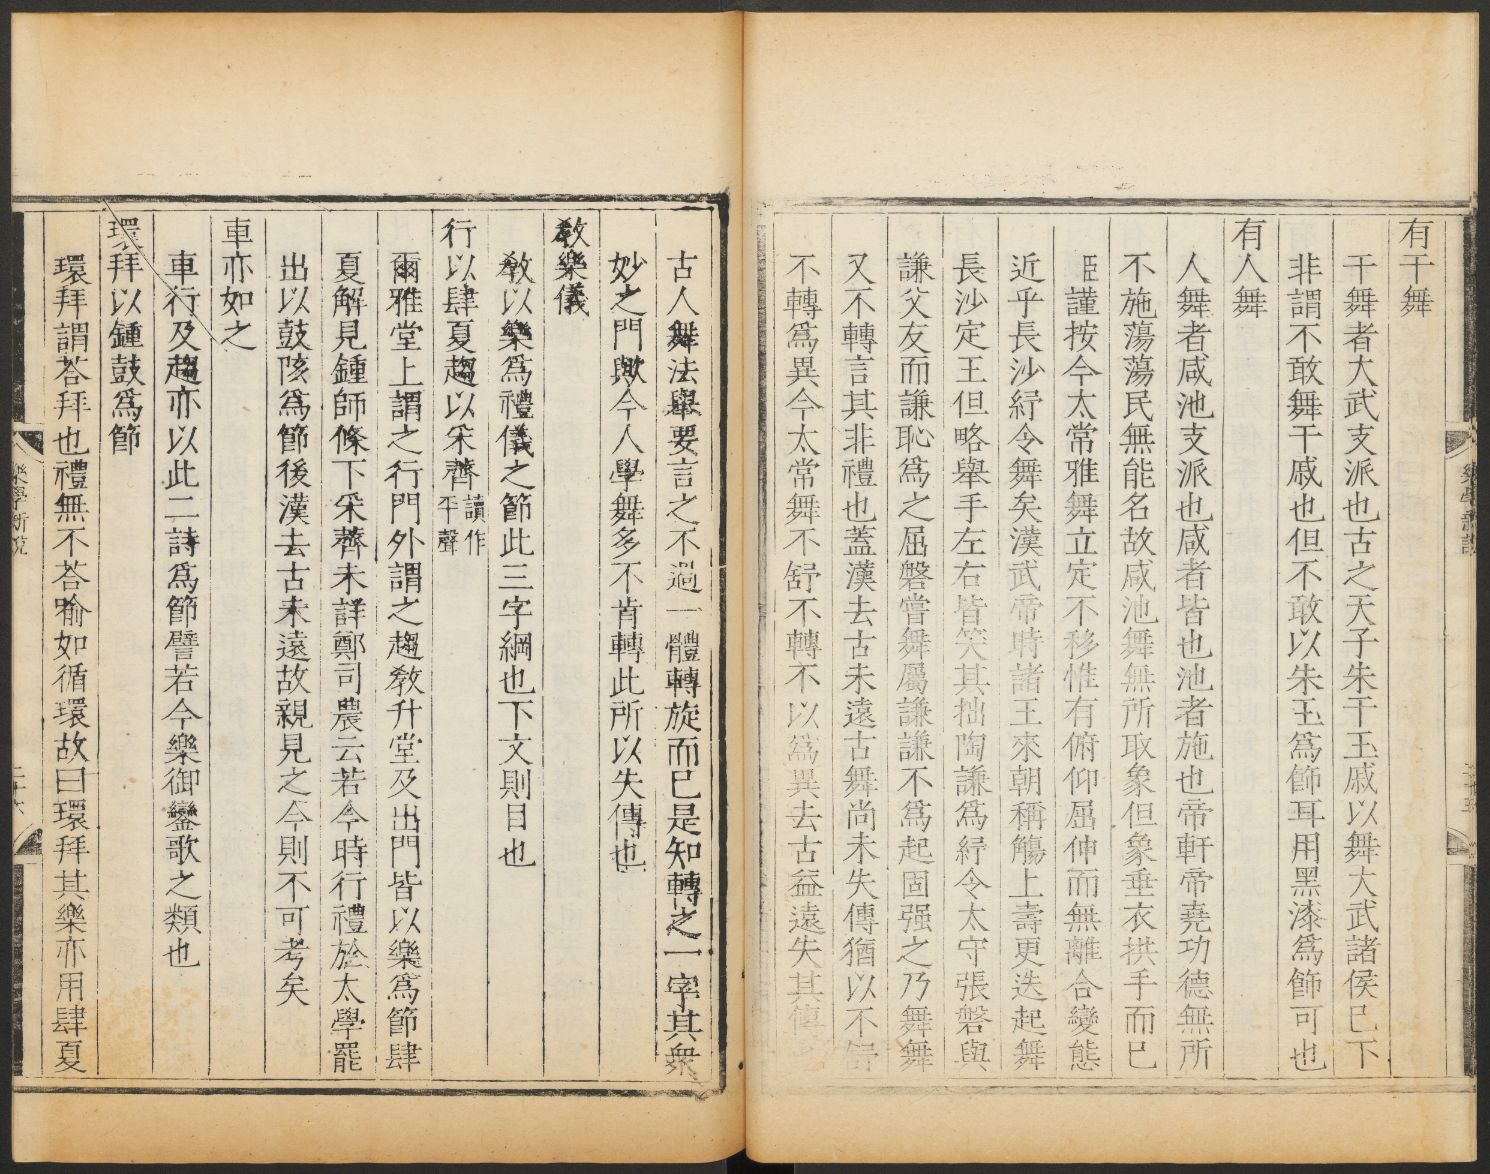 有干舞
干舞者大武支派也古之天子朱干玉戚以舞大武諸侯已下
非謂不敢舞干戚也但不敢以朱玉爲飾耳用黑漆爲飾可也
有人舞
人舞者咸池支派也咸者皆也池者施也帝軒帝堯功德無所
不施蕩蕩民無能名故咸池舞無所取象但象垂衣拱手而已
臣謹按今太常雅舞立定不移惟有俯仰屈伸而無離合變態
近乎長沙紓令舞矣漢武帝時諸王來朝稱觴上壽更迭起舞
長沙定王但略舉手左右皆笑其拙陶謙爲紓令太守張磐與
謙父友而謙恥爲之屈磐嘗舞屬謙謙不爲起固强之乃舞舞
又不轉言其非禮也蓋漢去古未遠古舞尚未失傳猶以不舒
不轉爲異今太常舞不舒不轉不以爲異去古益遠失其傳
樂學新說
二十五
古人舞法舉要言之不過一體轉旋而已是知轉之一字其衆
妙之門歟今人學舞多不肯轉此所以失傳也
敎樂儀
敎以樂爲禮儀之節此三字綱也下文則目也
行以肆夏趨以采薺讀作平聲
爾雅堂上謂之行門外謂之趨敎升堂及出門皆以樂爲節肆
夏解見鍾師條下采薺未詳鄭司農云若今時行禮於太學罷
出以鼓陔爲節後漢去古未遠故親見之今則不可考矣
車亦如之
車行及趨亦以此二詩爲節譬若今樂御鑾歌之類也
環拜以鍾鼓爲節
環拜謂荅拜也禮無不荅喻如循環故曰環拜其樂亦用肆夏
樂學新說
二十六